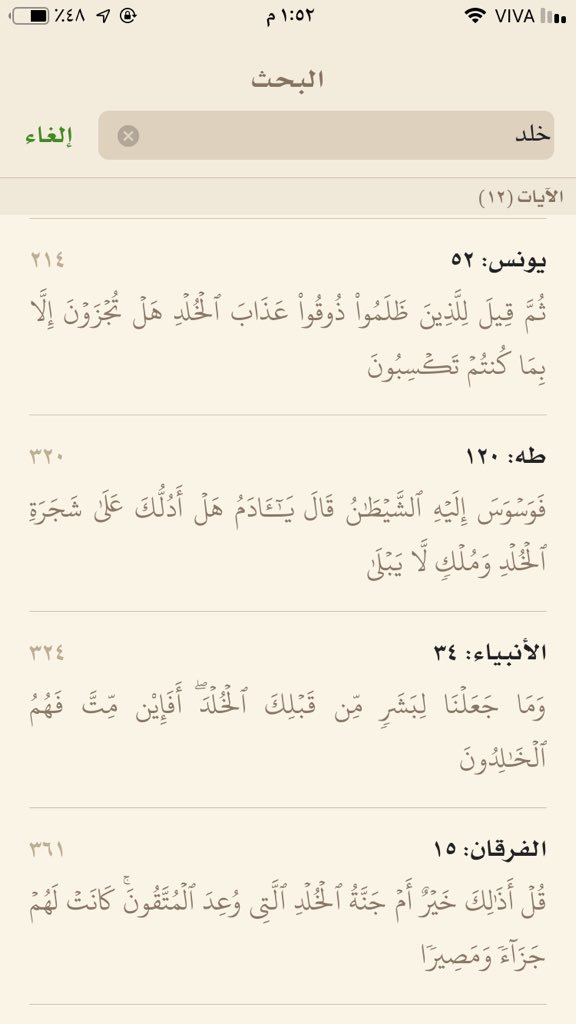 ٪٤٨ ١:٥٢ م VIVA
البحث
خلد إلغاء
الآيات (١٢)
يونس: ٥٢ ٢١٤
ثُمَّ قِيلَ لِلَّذِينَ ظَلَمُواْ ذُوقُواْ عَذَابَ ٱلْخُلْدِ هَلْ تُجْزَوْنَ إِلَّا
بِمَا كُنتُمْ تَكْسِبُونَ
طه: ١٢٠ ٣٢٠
فَوَسْوَسَ إِلَيْهِ ٱلشَّيْطَٰنُ قَالَ يَٰٓـَٔادَمُ هَلْ أَدُلُّكَ عَلَىٰ شَجَرَةِ
ٱلْخُلْدِ وَمُلْكٍ لَّا يَبْلَىٰ
الأنبياء: ٣٤ ٣٢٤
وَمَا جَعَلْنَا لِبَشَرٍ مِّن قَبْلِكَ ٱلْخُلْدَۖ أَفَإِيْن مِّتَّ فَهُمُ
ٱلْخَٰلِدُونَ
الفرقان: ١٥ ٣٦١
قُلْ أَذَٰلِكَ خَيْرٌ أَمْ جَنَّةُ ٱلْخُلْدِ ٱلَّتِى وُعِدَ ٱلْمُتَّقُونَۚ كَانَتْ لَهُمْ
جَزَآءً وَمَصِيرًا